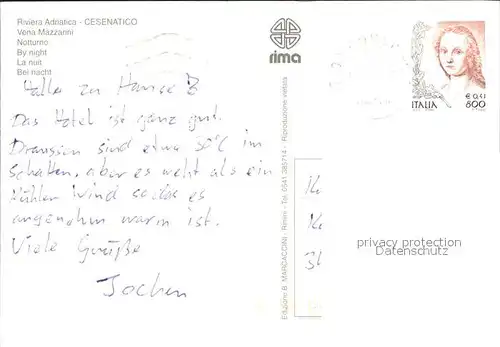 Riviera Adriatica - CESENATICO
Vena Mazzarini
Notturno
By night
La nuit
Bei nacht
rima
€ 0,41
ITALIA 800
Hallo zu Hause
Das Hotel ist ganz gut.
Draussen sind etwa 30°C im
Schatten, aber es weht als ein
kühler Wind sodas es
angenehm warm ist.
Viele Grüße
Jochen
Edizione B. MARDACCINI - Rimini - Tel. 0541 385714 - Riproduzione vietata
privacy protection
Datenschutz